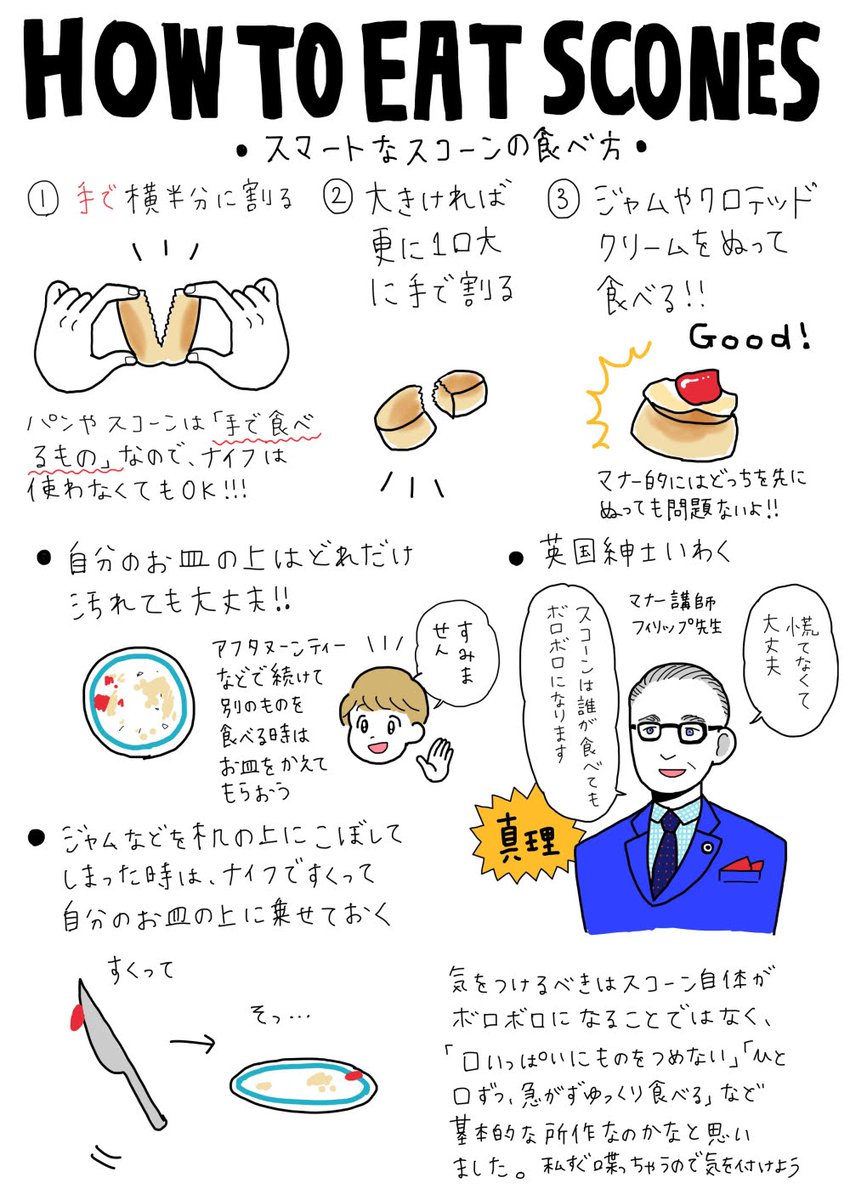 HOW TO EAT SCONES
• スマートなスコーンの食べ方 •
① 手で横半分に割る
パンやスコーンは「手で食べ
るもの」なので、ナイフは
使わなくてもOK!!!
② 大きければ
更に1口大
に手で割る
③ ジャムやクロテッド
クリームをぬって
食べる!!
Good!
マナー的にはどっちを先に
ぬっても問題ないよ!!
• 自分のお皿の上はどれだけ
汚れても大丈夫!!
アフタヌーンティー
などで続けて
別のものを
食べる時は
お皿をかえて
もらおう
すみま
せん
• 英国紳士いわく
マナー講師
フィリップ先生
慌てなくて
大丈夫
スコーンは誰が食べても
ボロボロになります
真理
• ジャムなどを机の上にこぼして
しまった時は、ナイフですくって
自分のお皿の上に乗せておく
すくって
そっ…
気をつけるべきはスコーン自体が
ボロボロになることではなく、
「口いっぱいにものをつめない」「ひと
口ずつ、急がずゆっくり食べる」など
基本的な所作なのかなと思い
ました。私すぐ喋っちゃうので気を付けよう